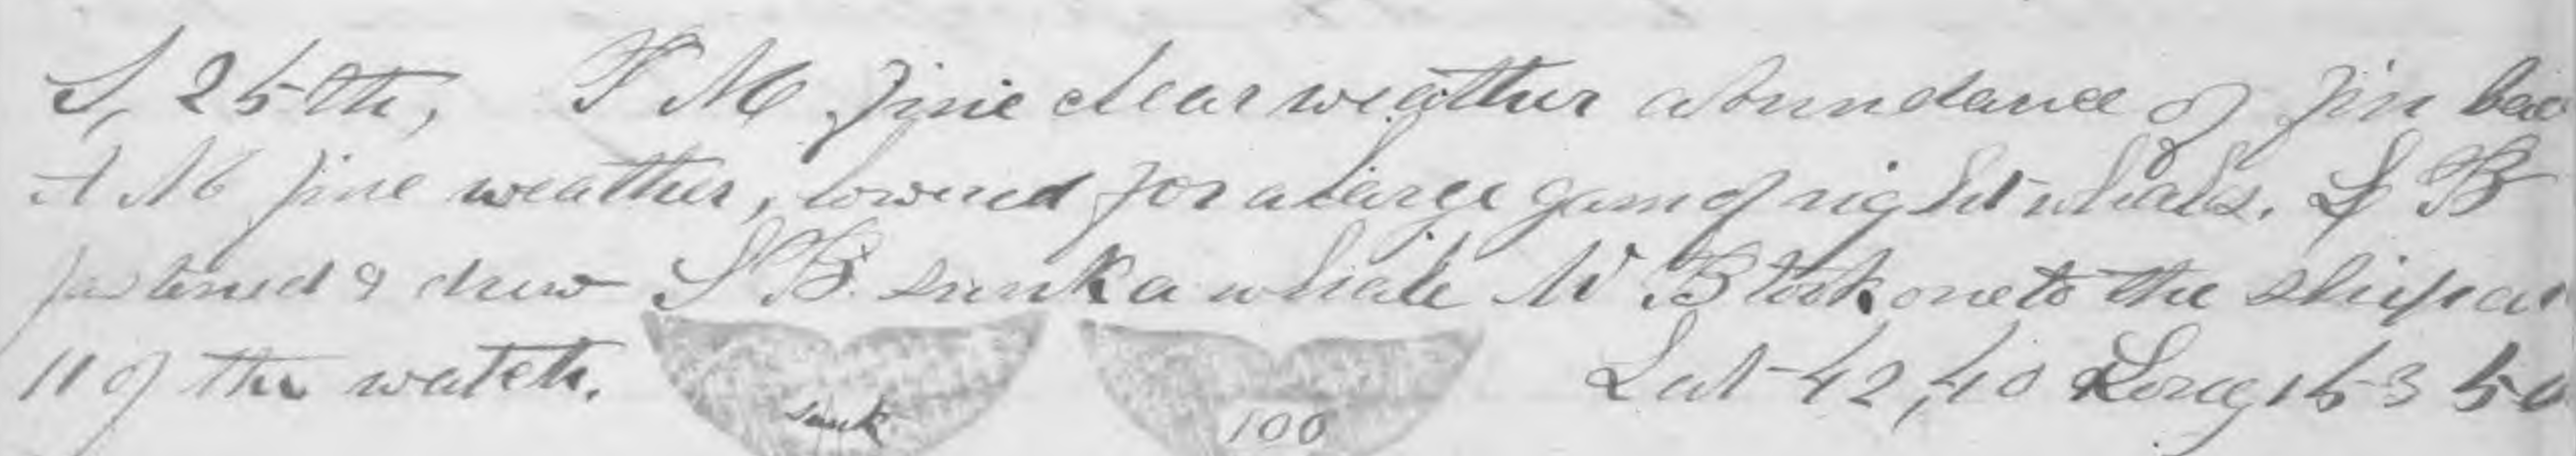 S, 25th, P M fine clear weather abundance of fin bac
A M fine weather, lowered for a large gam of right whales. L B
fastened & drew S B. sunk a whale W B took one to the ship at
11 of the watch. Lat 42,40 Long 153 50
sunk 100